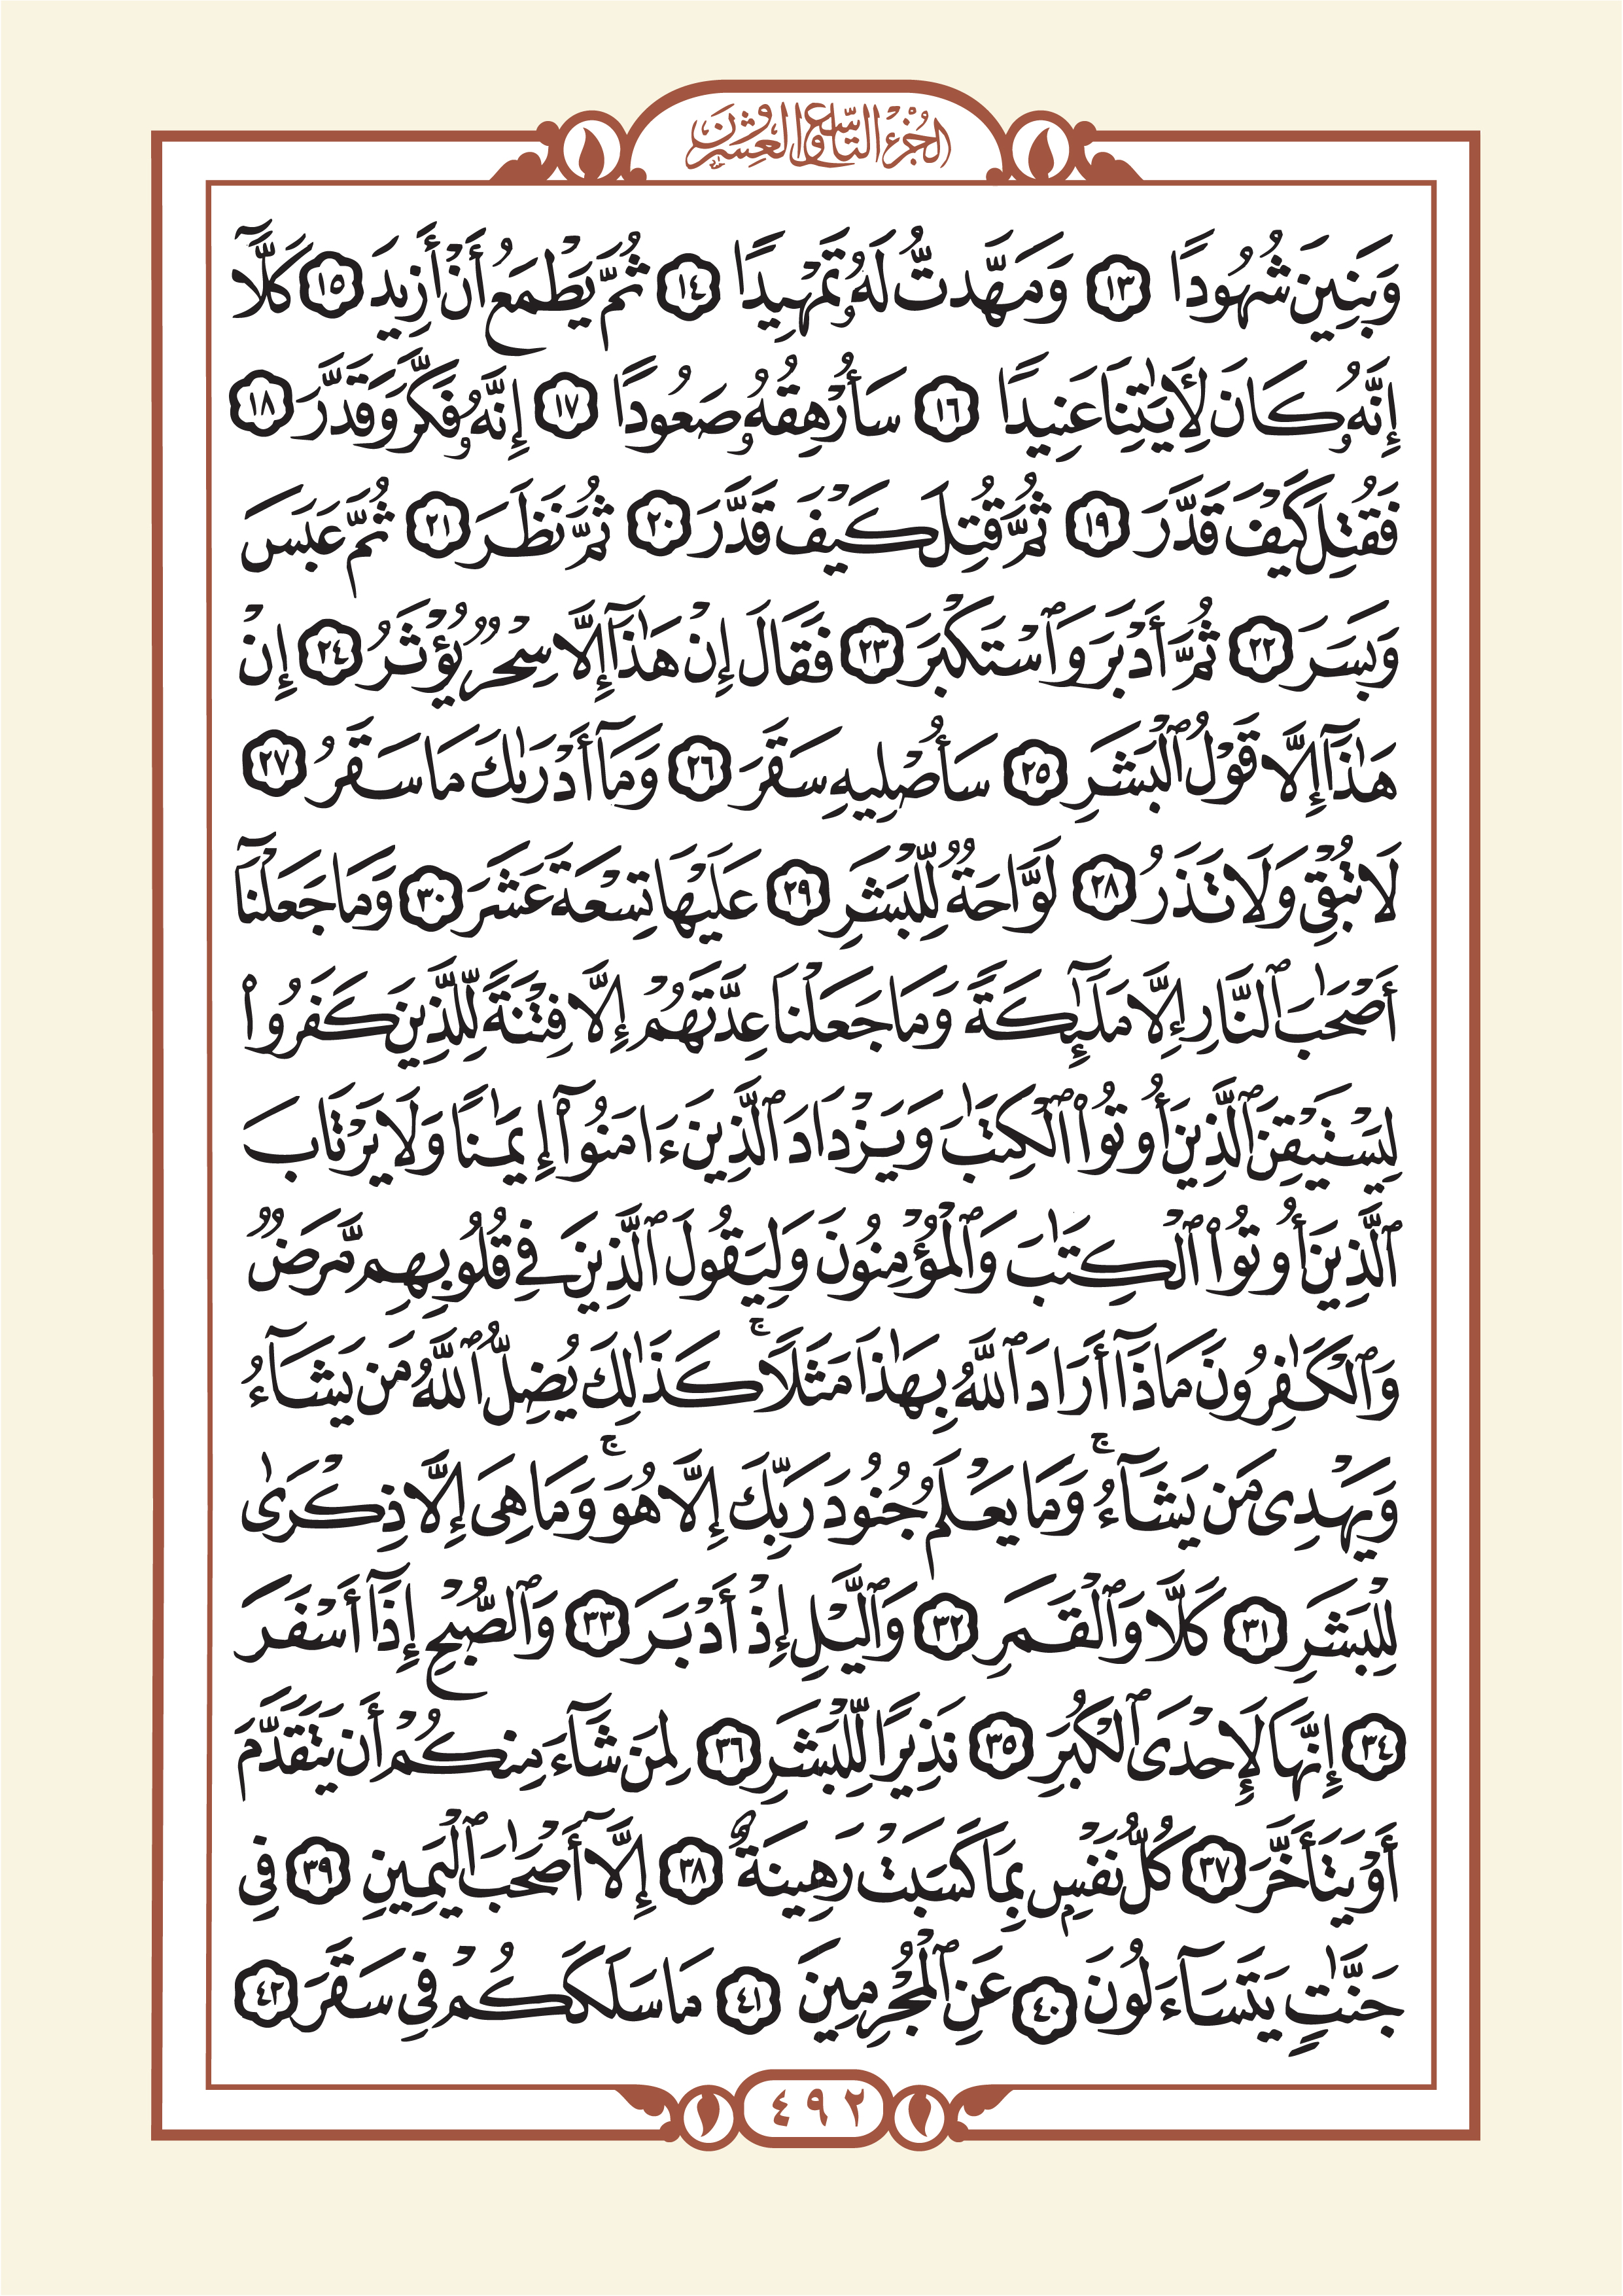 الجزء التاسع والعشرون
وَبَنِينَ شُهُودًا ١٣ وَمَهَّدتُّ لَهُۥ تَمْهِيدًا ١٤ ثُمَّ يَطْمَعُ أَنْ أَزِيدَ ١٥ كَلَّآ
إِنَّهُۥ كَانَ لِأَيَٰتِنَا عَنِيدًا ١٦ سَأُرْهِقُهُۥ صَعُودًا ١٧ إِنَّهُۥ فَكَّرَ وَقَدَّرَ ١٨
فَقُتِلَ كَيْفَ قَدَّرَ ١٩ ثُمَّ قُتِلَ كَيْفَ قَدَّرَ ٢٠ ثُمَّ نَظَرَ ٢١ ثُمَّ عَبَسَ
وَبَسَرَ ٢٢ ثُمَّ أَدْبَرَ وَٱسْتَكْبَرَ ٢٣ فَقَالَ إِنْ هَٰذَآ إِلَّا سِحْرٌ يُؤْثَرُ ٢٤ إِنْ
هَٰذَآ إِلَّا قَوْلُ ٱلْبَشَرِ ٢٥ سَأُصْلِيهِ سَقَرَ ٢٦ وَمَآ أَدْرَىٰكَ مَا سَقَرُ ٢٧
لَا تُبْقِى وَلَا تَذَرُ ٢٨ لَوَّاحَةٌ لِّلْبَشَرِ ٢٩ عَلَيْهَا تِسْعَةَ عَشَرَ ٣٠ وَمَا جَعَلْنَآ
أَصْحَٰبَ ٱلنَّارِ إِلَّا مَلَٰٓئِكَةً وَمَا جَعَلْنَا عِدَّتَهُمْ إِلَّا فِتْنَةً لِّلَّذِينَ كَفَرُوا۟
لِيَسْتَيْقِنَ ٱلَّذِينَ أُوتُوا۟ ٱلْكِتَٰبَ وَيَزْدَادَ ٱلَّذِينَ ءَامَنُوٓا۟ إِيمَٰنًا وَلَا يَرْتَابَ
ٱلَّذِينَ أُوتُوا۟ ٱلْكِتَٰبَ وَٱلْمُؤْمِنُونَ وَلِيَقُولَ ٱلَّذِينَ فِى قُلُوبِهِم مَّرَضٌ
وَٱلْكَٰفِرُونَ مَاذَآ أَرَادَ ٱللَّهُ بِهَٰذَا مَثَلًا ۚ كَذَٰلِكَ يُضِلُّ ٱللَّهُ مَن يَشَآءُ
وَيَهْدِى مَن يَشَآءُ ۚ وَمَا يَعْلَمُ جُنُودَ رَبِّكَ إِلَّا هُوَ ۚ وَمَا هِىَ إِلَّا ذِكْرَىٰ
لِلْبَشَرِ ٣١ كَلَّا وَٱلْقَمَرِ ٣٢ وَٱلَّيْلِ إِذْ أَدْبَرَ ٣٣ وَٱلصُّبْحِ إِذَآ أَسْفَرَ
٣٤ إِنَّهَا لَإِحْدَى ٱلْكُبَرِ ٣٥ نَذِيرًا لِّلْبَشَرِ ٣٦ لِمَن شَآءَ مِنكُمْ أَن يَتَقَدَّمَ
أَوْ يَتَأَخَّرَ ٣٧ كُلُّ نَفْسٍۭ بِمَا كَسَبَتْ رَهِينَةٌ ٣٨ إِلَّآ أَصْحَٰبَ ٱلْيَمِينِ ٣٩ فِى
جَنَّٰتٍ يَتَسَآءَلُونَ ٤٠ عَنِ ٱلْمُجْرِمِينَ ٤١ مَا سَلَكَكُمْ فِى سَقَرَ ٤٢
٤٩٢